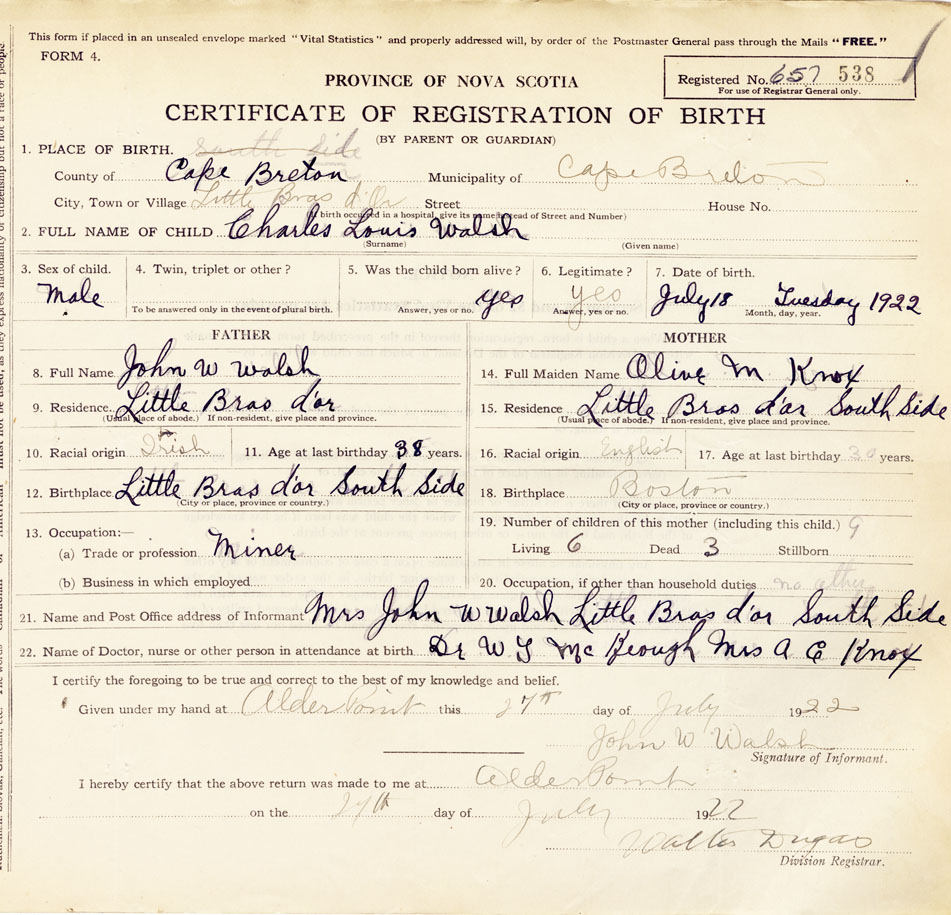 This form if placed in an unsealed envelope marked "Vital Statistics" and properly addressed will, by order of the Postmaster General pass through the Mails "FREE."
FORM 4.
Registered No. 657 538
For use of Registrar General only.
PROVINCE OF NOVA SCOTIA
CERTIFICATE OF REGISTRATION OF BIRTH
(BY PARENT OR GUARDIAN)
1. PLACE OF BIRTH. South Side
County of Cape Breton Municipality of Cape Breton
City, Town or Village Little Bras d'Or Street House No.
birth occurred in a hospital, give its name instead of Street and Number)
2. FULL NAME OF CHILD Charles Louis Walsh
(Surname) (Given name)
3. Sex of child. 4. Twin, triplet or other? 5. Was the child born alive? 6. Legitimate? 7. Date of birth.
Male yes yes July 18 Tuesday 1922
To be answered only in the event of plural birth. Answer, yes or no. Answer, yes or no. Month, day, year.
FATHER MOTHER
8. Full Name John W Walsh 14. Full Maiden Name Olive M Knox
9. Residence. Little Bras d'or 15. Residence Little Bras d'or South Side
(Usual place of abode.) If non-resident, give place and province. (Usual place of abode.) If non-resident, give place and province.
10. Racial origin Irish 11. Age at last birthday 38 years. 16. Racial origin English 17. Age at last birthday years.
12. Birthplace Little Bras d'or South Side 18. Birthplace Boston
(City or place, province or country.) (City or place, province or country.)
13. Occupation:— 19. Number of children of this mother (including this child.) 9
(a) Trade or profession Miner Living 6 Dead 3 Stillborn
(b) Business in which employed 20. Occupation, if other than household duties no other
21. Name and Post Office address of Informant Mrs John W Walsh Little Bras d'or South Side
22. Name of Doctor, nurse or other person in attendance at birth. Dr W J Mc Keough Mrs A E Knox
I certify the foregoing to be true and correct to the best of my knowledge and belief.
Given under my hand at Alder Point this 27th day of July 1922
John W Walsh
Signature of Informant.
I hereby certify that the above return was made to me at Alder Point
on the 27th day of July 1922
Walter Dugas
Division Registrar.